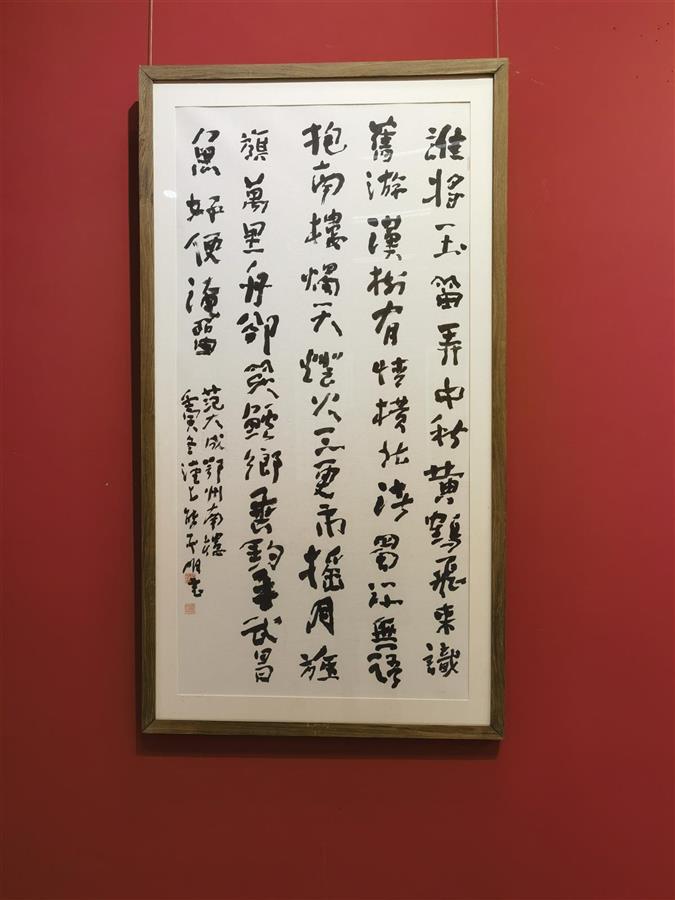 誰將玉笛弄中秋黃鶴飛來識
舊游漢樹有情橫北渚蜀江無語
抱南樓燭天燈火三更市搖月旌
旗萬里舟卻笑鱸鄉垂釣手武昌
魚好便淹留
范大成鄂州南樓
寅冬漢上明書